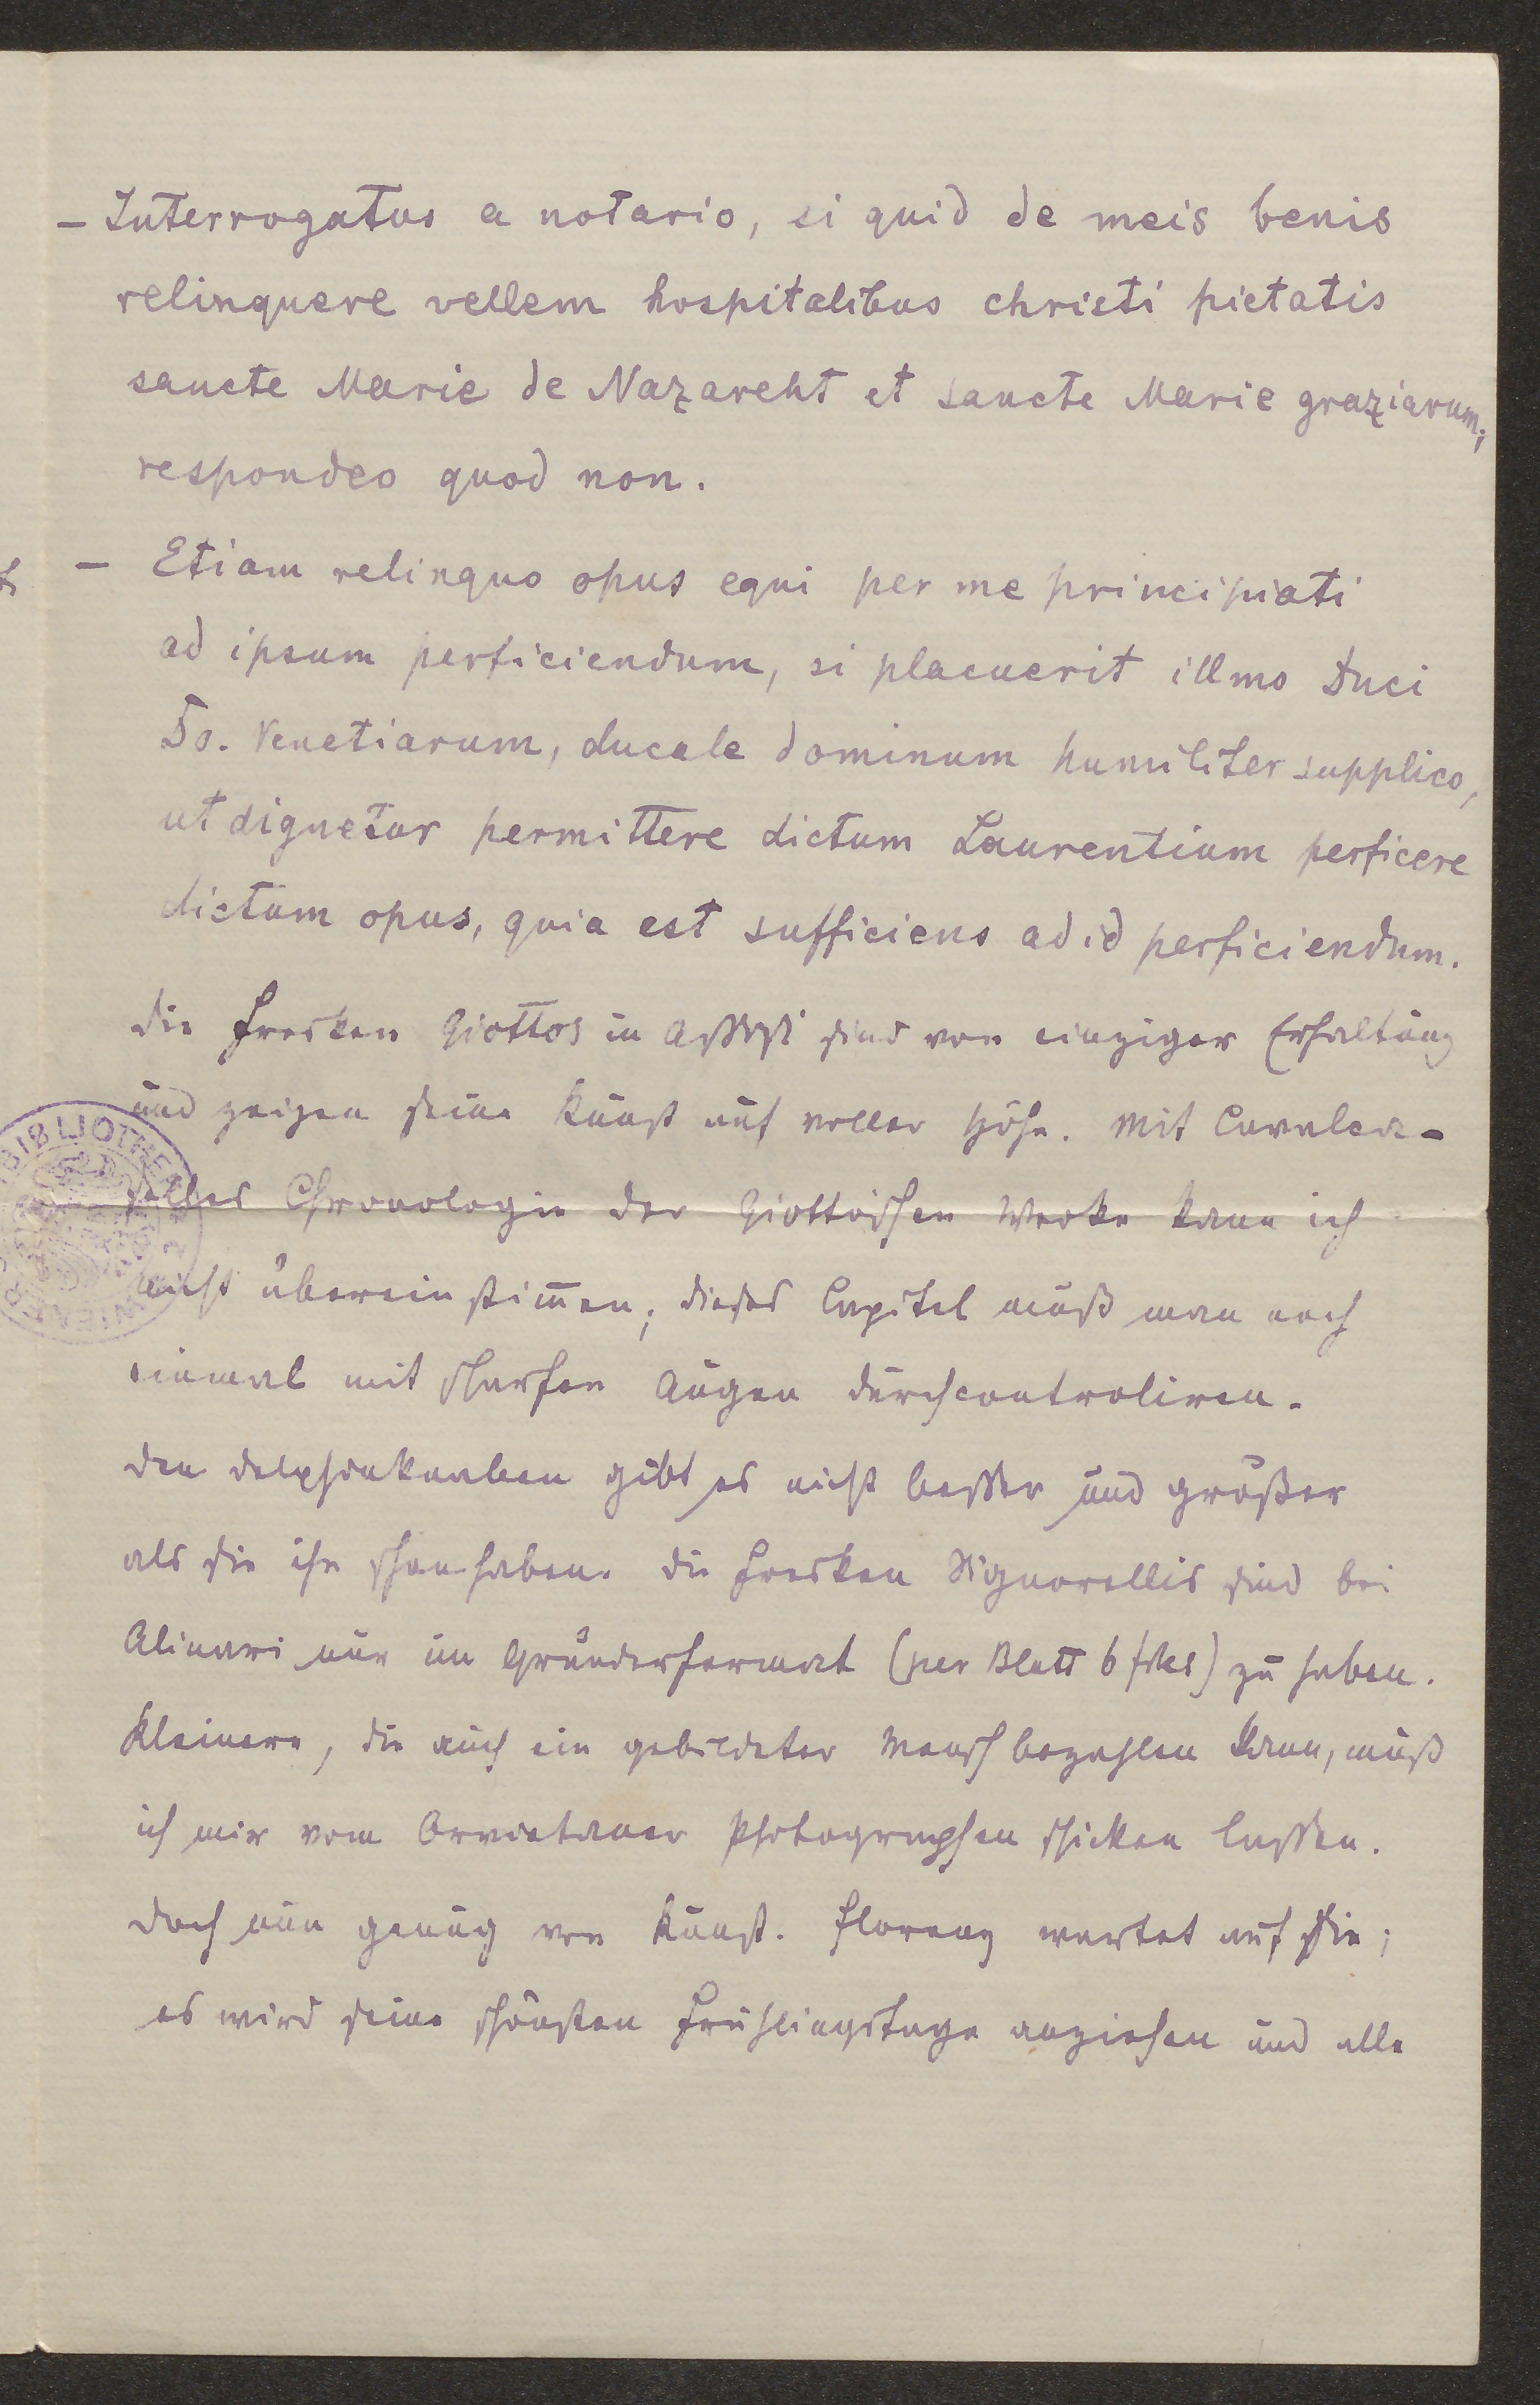 - Interrogatus a notario, si quid de meis benis
relinquere vellem hospitalibus christi pietatis
sancte Marie de Nazareht et sancte Marie graziarum;
respondeo quod non.
- Etiam relinquo opus equi per me principiati
ad ipsum perficiendum, si placuerit illmo Duci
Do. Venetiarum, ducale dominum humiliter supplico,
ut dignetur permittere dictum Laurentium perficere
dictum opus, quia est sufficiens ad id perficiendum.
Die Fresken Giottos in Assisi sind von einziger Erhaltung
und zeigen seine Kunst auf voller Höhe. Mit Cavalca-
selles Chronologie der Giottoischen Werke kann ich
nicht übereinstim̄en; dieses Capitel muß man noch
einmal mit scharfen Augen durchcontroliren.
Den Delphinknaben gibt es nicht besser und größer
als Sie ihn schon haben. Die Fresken Signorellis sind bei
Alinari nur im Gründerformat (per Blatt 6 frks) zu haben.
Kleinere, die auch ein gebildeter Mensch bezahlen kann, muß
ich mir vom Orvietaner Photographen schicken lassen.
Doch nun genug von Kunst. Florenz wartet auf Sie;
es wird seine schönsten Frühlingstage anziehen und alle
BIBLIOTHEK
WIENER